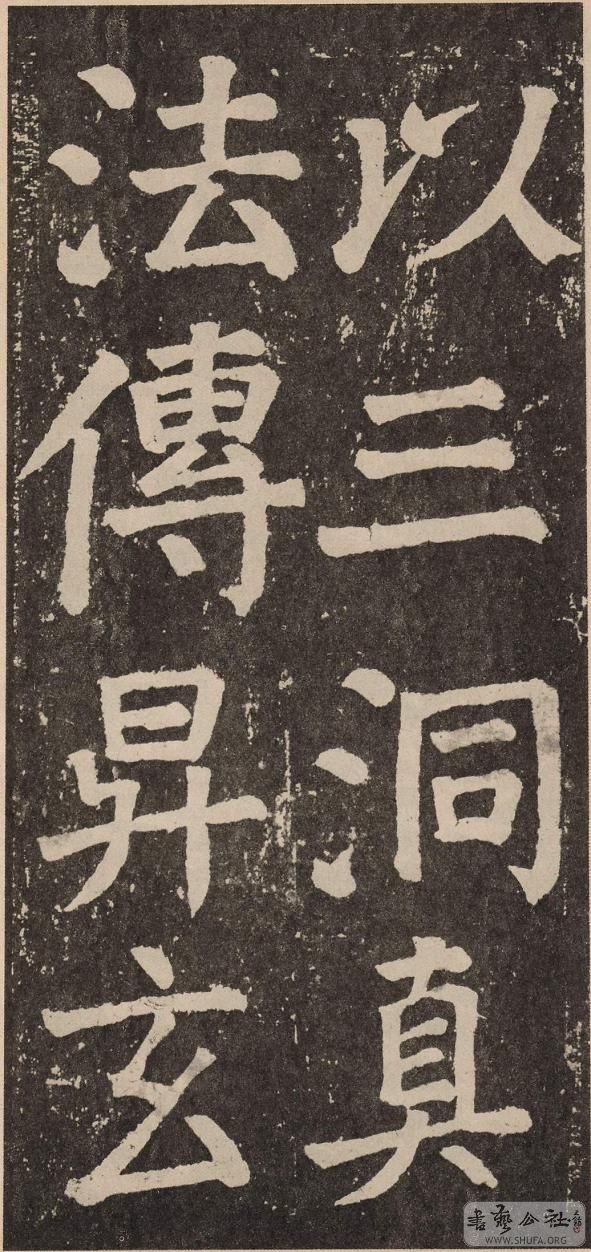 以三洞真
法傳昇玄
書藝公社
WWW.SHUFA.ORG